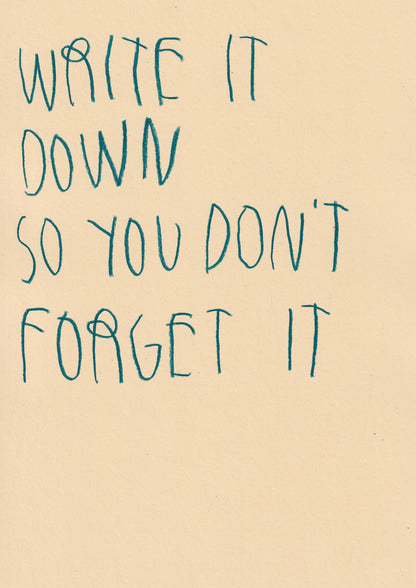 WRITE IT
DOWN
SO YOU DON'T
FORGET IT